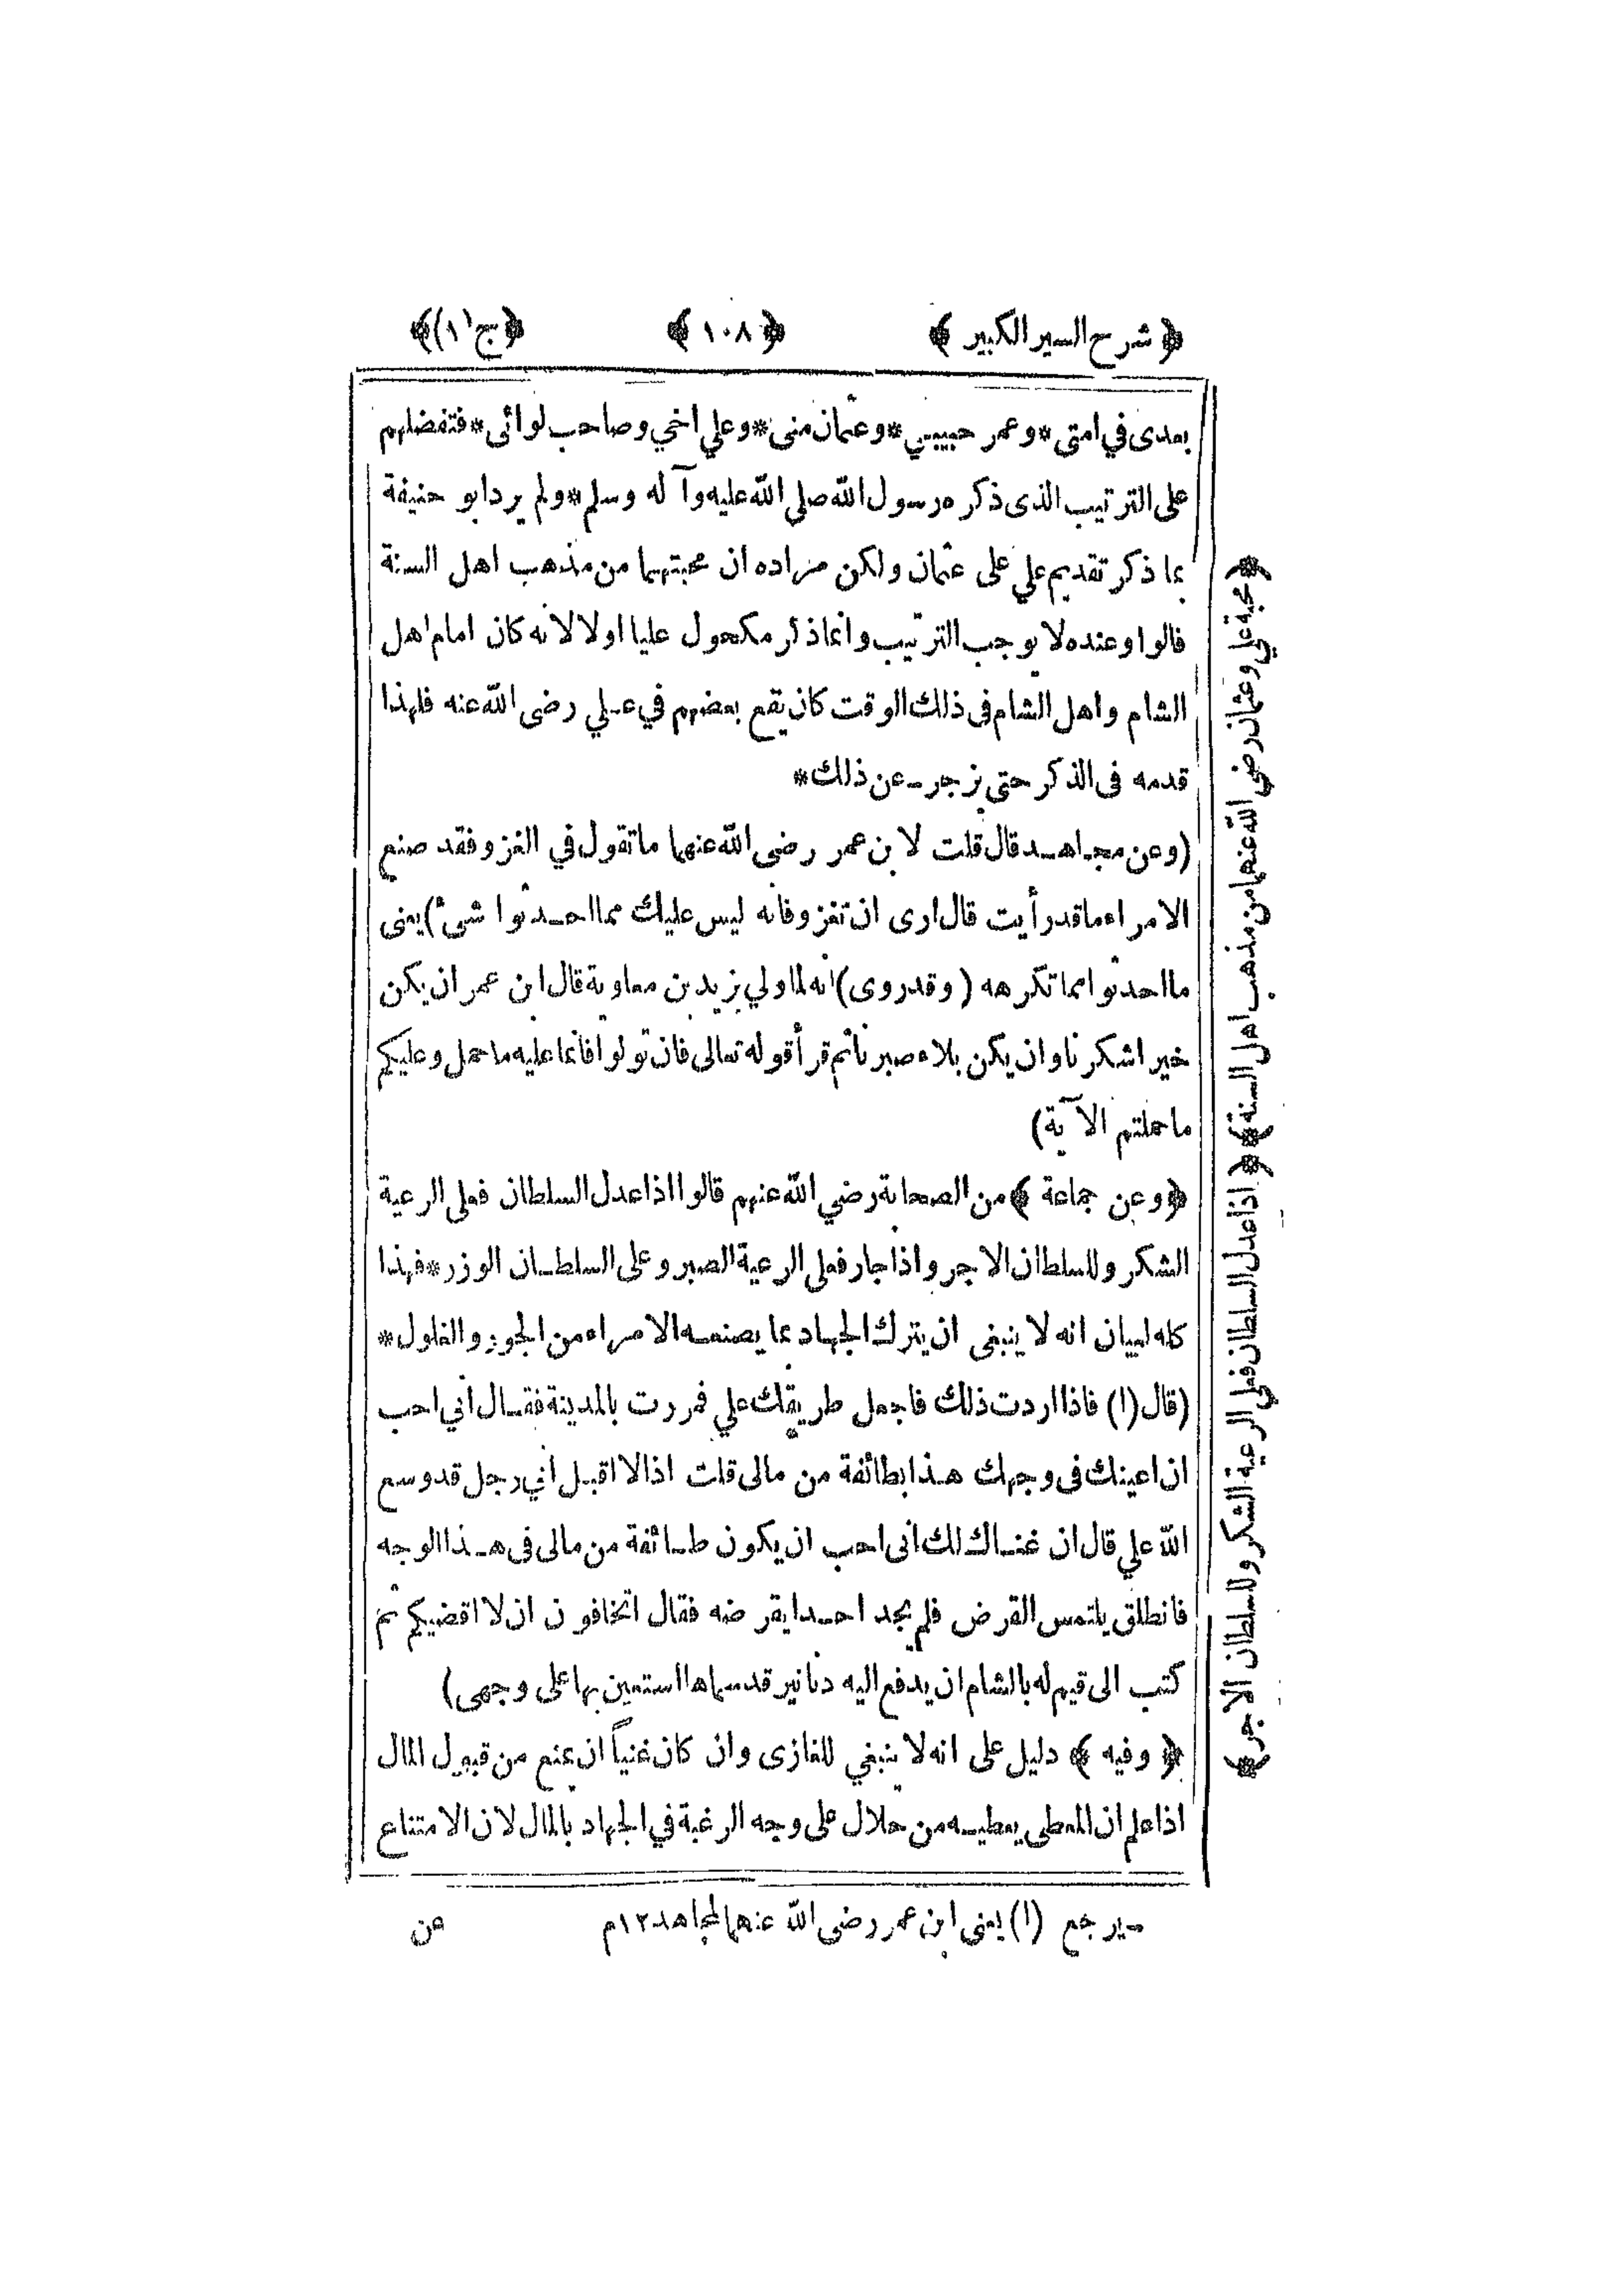 ﴿ شرح السير الكبير ﴾ ﴿ ١٠٨ ﴾ ﴿ج (١)﴾
بعدى في امتى * وعمر حبيبي * وعثمان منى * وعلي اخي وصاحب لوائى * فتفضلهم
على الترتيب الذى ذكره رسول الله صلي الله عليه وآله وسلم * ولم يرد ابو حنيفة
بما ذكر تقديم علي على عثمان ولكن مراده ان محبتهما من مذهب اهل السنة
قالوا وعنده لا يوجب الترتيب وانما ذكر مكحول عليا اولا لانه كان امام اهل
الشام واهل الشام فى ذلك الوقت كان يقع بعضهم في علي رضى الله عنه فلهذا
قدمه فى الذكر حتى يزجر عن ذلك *
(وعن مجاهد قال قلت لابن عمر رضى الله عنهما ما تقول في الغزو فقد صنع
الامراء ما قد رأيت قال ارى ان تغزو فانه ليس عليك مما احدثوا شئ) يعنى
ما احدثوا مما تكرهه (وقد روى) انه لما ولي يزيد بن معاوية قال ابن عمر ان يكن
خيرا شكرنا وان يكن بلاء صبرنا ثم قرأ قوله تعالى فان تولوا فانما عليه ما حمل وعليكم
ما حملتم الآية)
﴿وعن جماعة ﴾ من الصحابة رضي الله عنهم قالوا اذا عدل السلطان فعلى الرعية
الشكر وللسلطان الاجر واذا جار فعلى الرعية الصبر وعلى السلطان الوزر * فهذا
كله لبيان انه لا ينبغى ان يترك الجهاد بما يصنعه الامراء من الجور والغلول *
(قال (١) فاذا اردت ذلك فاجعل طريقك علي فمررت بالمدينة فقال انى احب
ان اعينك فى وجهك هذا بطائفة من مالى قلت اذا لا اقبل اني رجل قد وسع
الله علي قال ان غناك لك انى احب ان يكون طائفة من مالى فى هذا الوجه
فانطلق يلتمس القرض فلم يجد احدا يقرضه فقال اتخافون ان لا اقضيكم ثم
كتب الى قيم له بالشام ان يدفع اليه دنانير قد سماها استعين بها على وجهى)
﴿ وفيه ﴾ دليل على انه لا ينبغي للغازى وان كان غنياً ان يمنع من قبول المال
اذا علم ان المعطى يعطيه من حلال على وجه الرغبة في الجهاد بالمال لان الامتناع
يرجع (١) يعنى ابن عمر رضى الله عنهما لمجاهد ١٢ م عن
﴿ محبة علي وعثمان رضي الله عنهما من مذهب اهل السنة ﴾ ﴿ اذا عدل السلطان فعلي الرعية الشكر وللسلطان الاجر ﴾